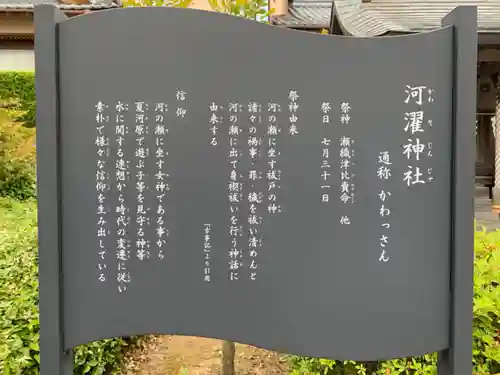 河濯神社
通称 かわっさん
祭神 瀬織津比賣命 他
祭日 七月三十一日
祭神由来
河の瀬に坐す祓戸の神
諸々の禍事・罪・穢を祓い清めんと
河の瀬に出て身禊祓いを行う神話に
由来する
「古事記」より引用
信仰
河の瀬に坐す女神である事から
夏河原で遊ぶ子等を見守る神等
水に関する連想から時代の変遷に従い
素朴で様々な信仰を生み出している